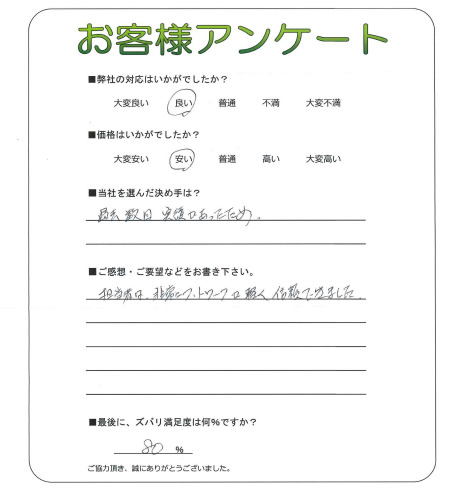 お客様アンケート
■弊社の対応はいかがでしたか?
大変良い 良い 普通 不満 大変不満
■価格はいかがでしたか?
大変安い 安い 普通 高い 大変高い
■当社を選んだ決め手は?
過去数回 実績があったため。
■ご感想・ご要望などをお書き下さい。
担当者は、非常にフットワークが軽く 信頼できました。
■最後に、ズバリ満足度は何%ですか?
80 %
ご協力頂き、誠にありがとうございました。